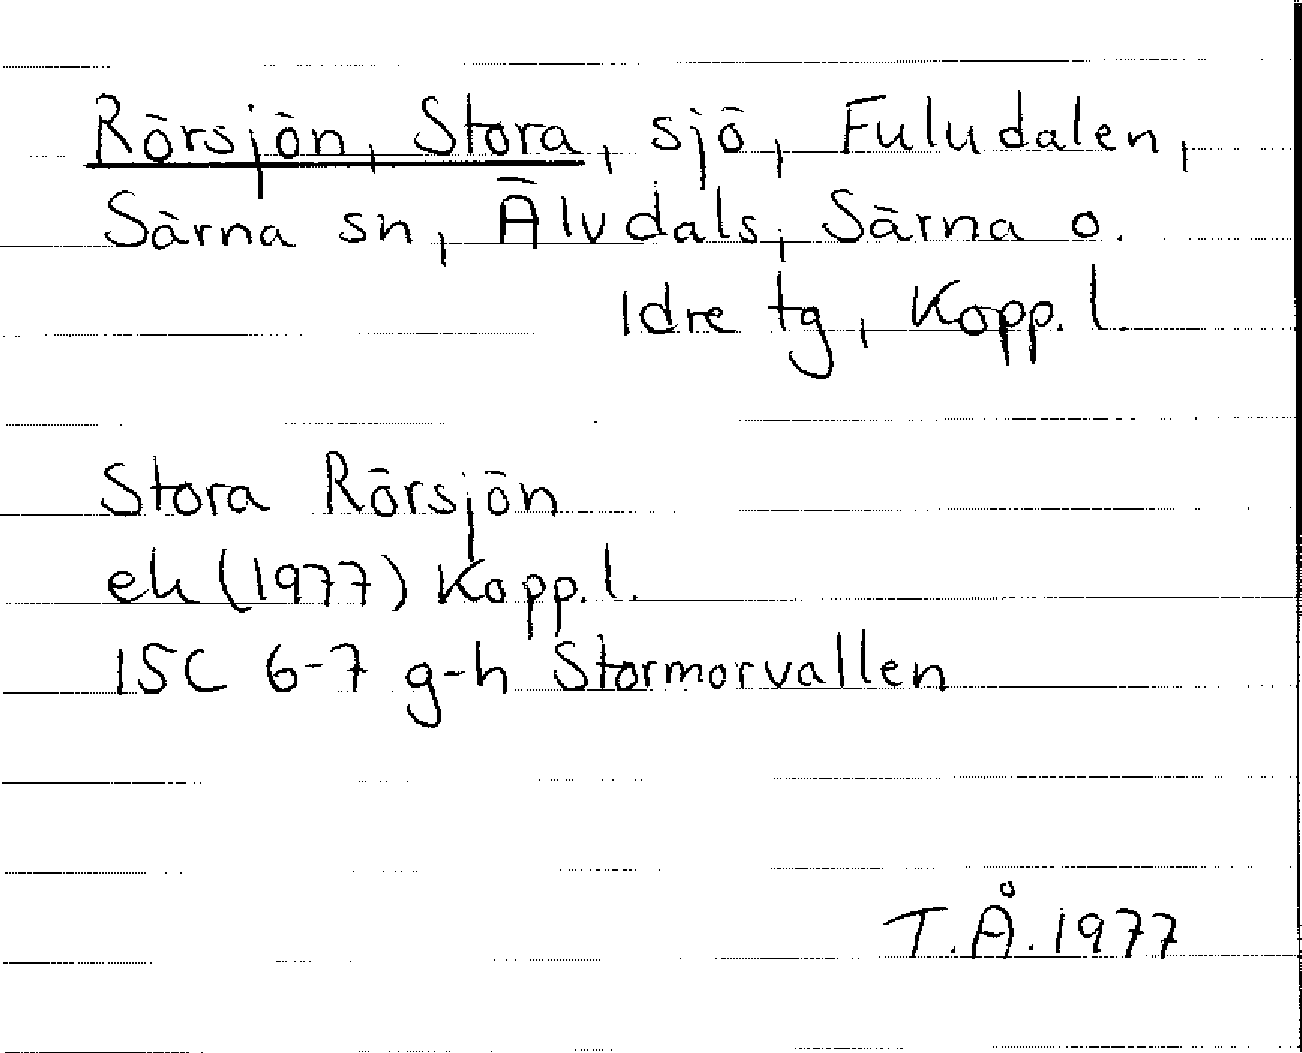 Rörsjön, Stora, sjö, Fuludalen,
Särna sn, Älvdals, Särna o.
Idre tg, Kopp. l.
Stora Rörsjön
ek (1977) Kopp. l.
15C 6-7 g-h Stormorvallen
T.Å. 1977